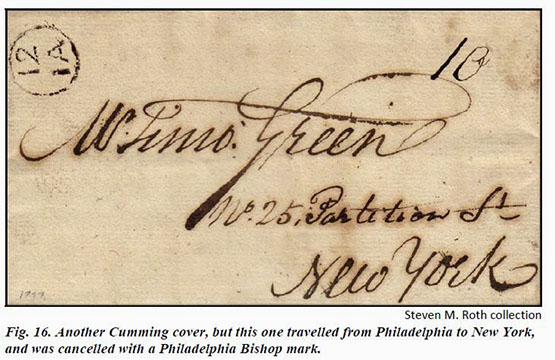 12
IA
10
Mr. Timo: Green
No. 25, Partition St
New York
Steven M. Roth collection
Fig. 16. Another Cumming cover, but this one travelled from Philadelphia to New York,
and was cancelled with a Philadelphia Bishop mark.